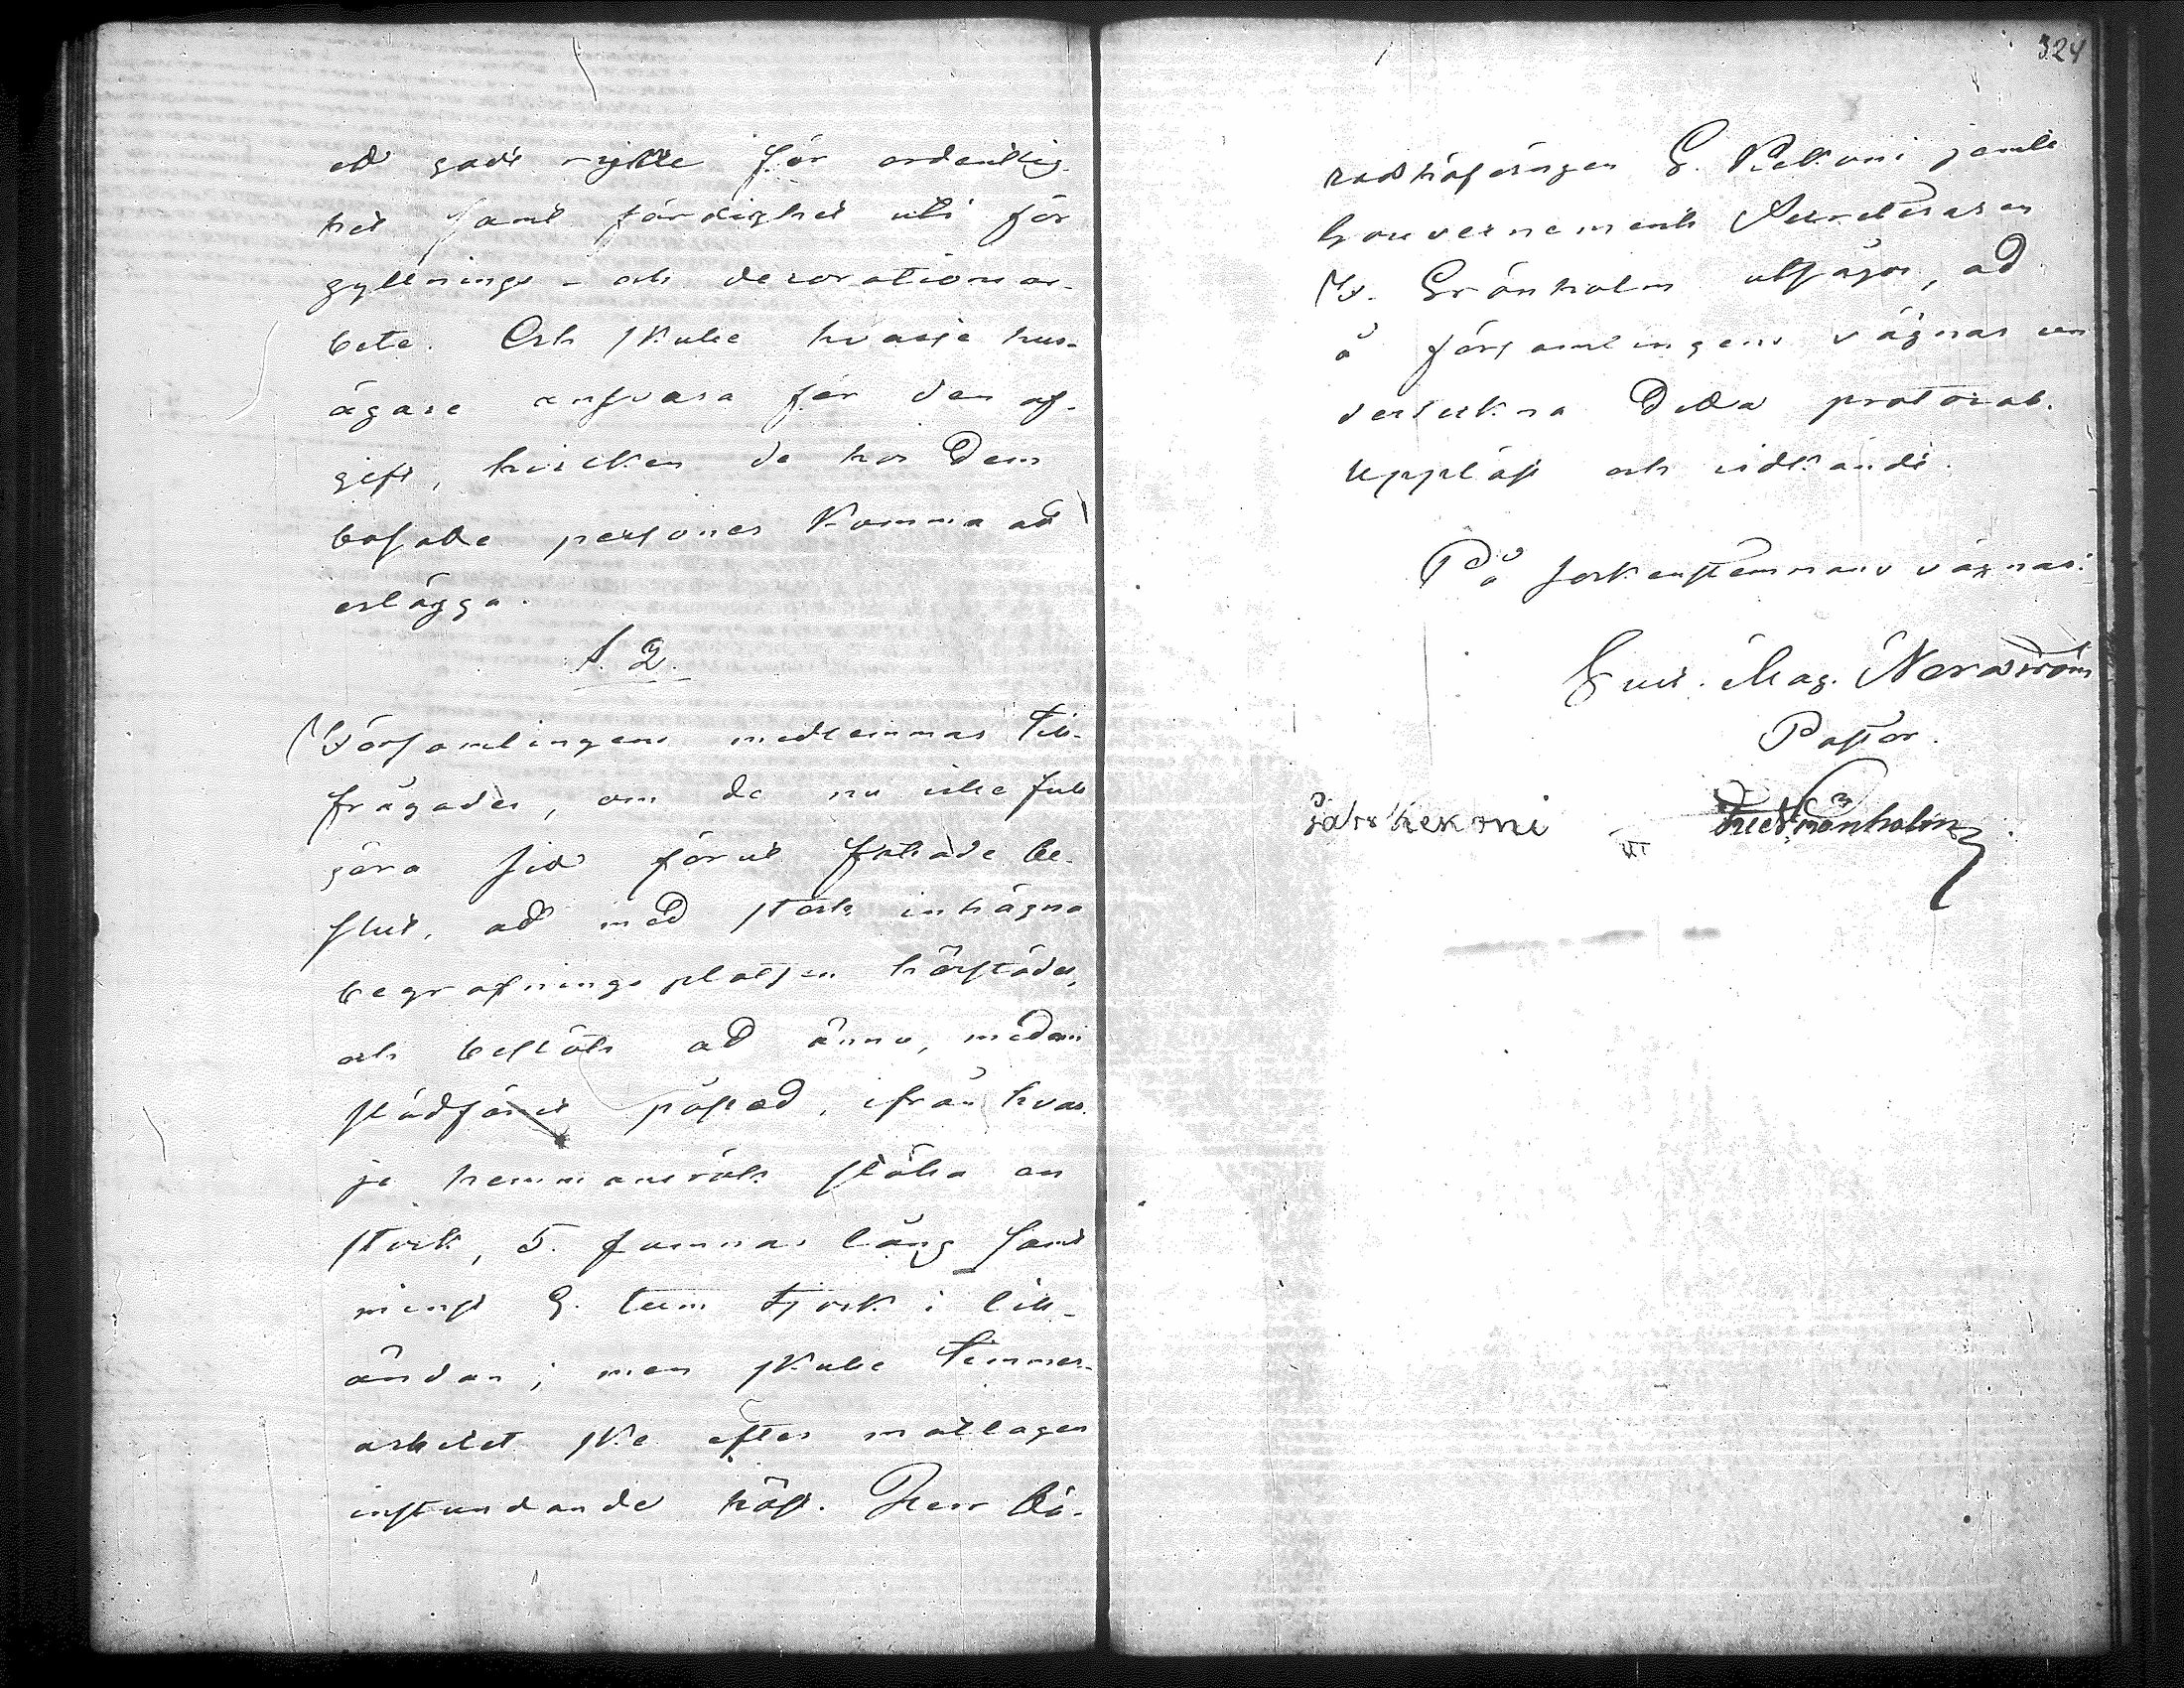 ett godt rykte för ordentlig-
het samt färdighet uti för
gyllnings- och decorationar-
bete. Och skulle hvarje hus-
ägare ansvara för den af-
gift, hvilken de hos dem
bosatte personer komma att
erlägga.
§. 2.
Församlingens medlemmar till-
frågades, om de nu ville full
göra sitt förut fattade be-
slut, att med stock inhägna
begrafningsplatsen härstädes,
och beslöts att ännu, medan
slädföret påstod, ifrån hvar
je hemman ställa en
stock, 5. famnar lång samt
minst 9. tum tjock i lill-
ändan; men skulle timmer-
arbetet ske efter
instundande höst. Herr
radshöfdingen G. jemte
Gouvernements Secreteraren
F. Grönholm utsågos, att
å församlingens vägnar un
derteckna detta protocoll.
Uppläst och vidkändt.
På sockenstemmans vägnar:
Gust. Mag. Nordström
Pastor.
Grönholm
324